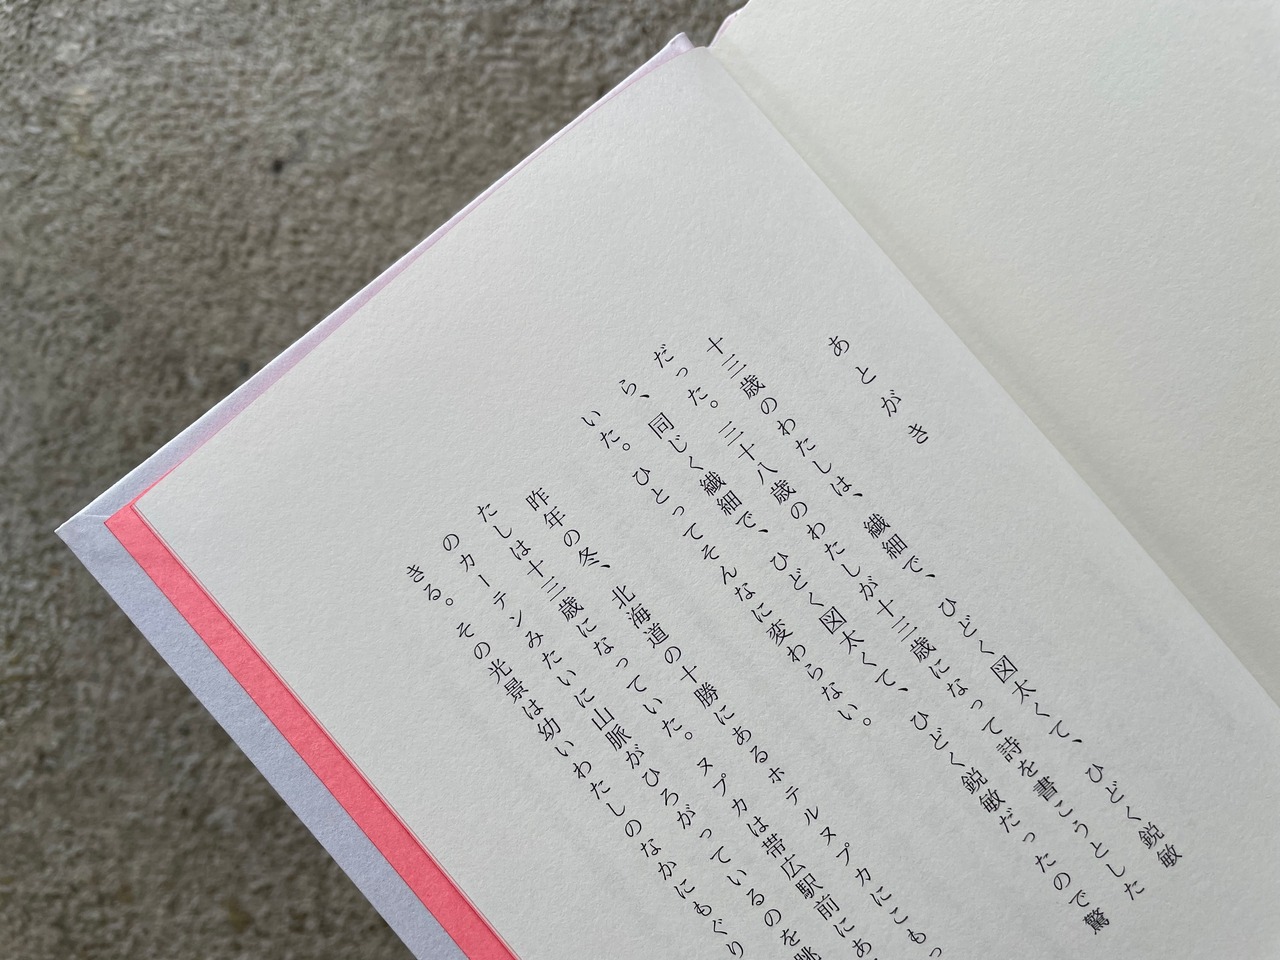 あとがき
十三歳のわたしは、繊細で、ひどく図太くて、ひどく鋭敏
だった。三十八歳のわたしが十三歳になって詩を書こうとした
ら、同じく繊細で、ひどく図太くて、ひどく鋭敏だったので驚
いた。ひとってそんなに変わらない。
昨年の冬、北海道の十勝にあるホテルヌプカにこもっ
たしは十三歳になっていた。ヌプカは帯広駅前にあ
のカーテンみたいに山脈がひろがっているのを眺
きる。その光景は幼いわたしのなかにもぐり